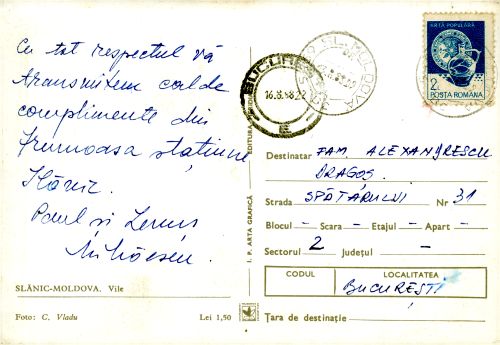 Cu tot respectul vă
transmitem calde
complimente din
frumoasa stațiune
Slănic.
Paul și
Mihăescu.
SLĂNIC-MOLDOVA. Vile
Foto: C. Vladu
Lei 1,50
EDITURA
I. P. ARTA GRAFICĂ
BUCUREȘTI
16.8.88.22
E
MOLDOVA
ARTĂ POPULARĂ
2L
POSTA ROMANA
Destinatar FAM. ALEXANDRESCU
DRAGOȘ.
Strada SPĂTARULUI Nr 31
Blocul — Scara — Etajul — Apart —
Sectorul 2 Județul —
CODUL LOCALITATEA
BUCUREȘTI
Țara de destinație